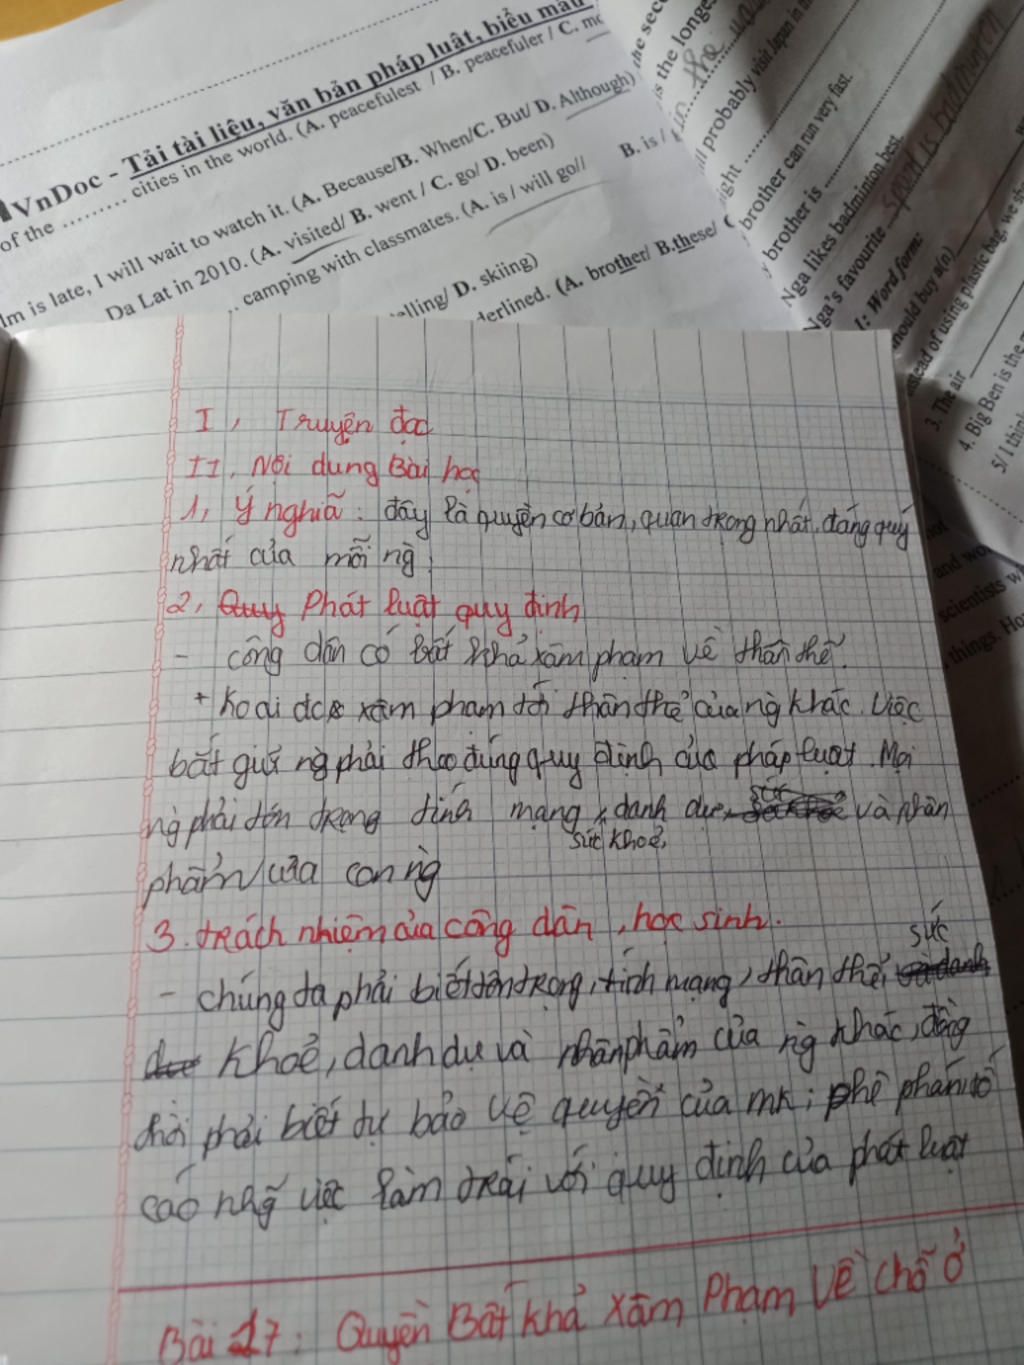 VnDoc - Tải tài liệu, văn bản pháp luật, biểu mẫu
of the ......... cities in the world. (A. peacefulest / B. peacefuler / C. mo
Im is late, I will wait to watch it. (A. Because/B. When/C. But/ D. Although)
Da Lat in 2010. (A. visited/ B. went / C. go/ D. been)
.. camping with classmates. (A. is / will go// B. is /
elling/ D. skiing)
derlined. (A. brother/ B.these/ C
the sec
is the longes
in the
ll probably visit Japan in th
ight
brother can run very fast.
y brother is
Nga likes badminton best.
Nga's favourite sport is badminton
1: Word form:
hould buy a(n)
nstead of using plastic bag, we sh
3. The air
4. Big Ben is the
5/ I think
not
and wo
scientists w
things. Ho
I, Truyện đọc
II, Nội dung Bài học
1, Ý nghĩa: đây là quyền cơ bản, quan trọng nhất, đáng quý
nhất của mỗi ng
2, Quy Phát luật quy định
- công dân có bất khả xâm phạm về thân thể.
+ Ko ai dc xâm phạm tới thân thể của ng khác. Việc
bắt giữ ng phải theo đúng quy định của pháp luật. Mọi
ng phải tôn trọng tính mạng, sức khoẻ, danh dự và nhân
phẩm của con ng
3. trách nhiệm của công dân, học sinh.
- chúng ta phải biết tôn trọng, tính mạng, thân thể, sức
khoẻ, danh dự và nhân phẩm của ng khác, đồng
thời phải biết tự bảo vệ quyền của mk; phê phán tố
cáo nhg~ việc làm trái với quy định của phát luật
Bài 17: Quyền Bất khả xâm Phạm Về chỗ ở